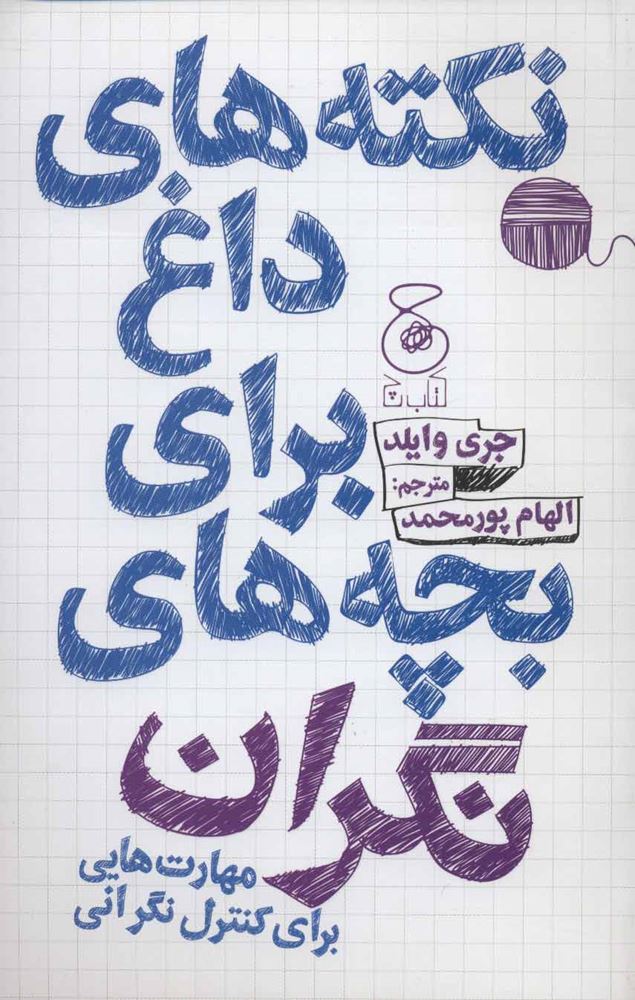 نکته‌های
داغ
برای
بچه‌های
نگران
مهارت‌هایی
برای کنترل نگرانی
کتاب چ
جری وایلد
مترجم:
الهام پورمحمد